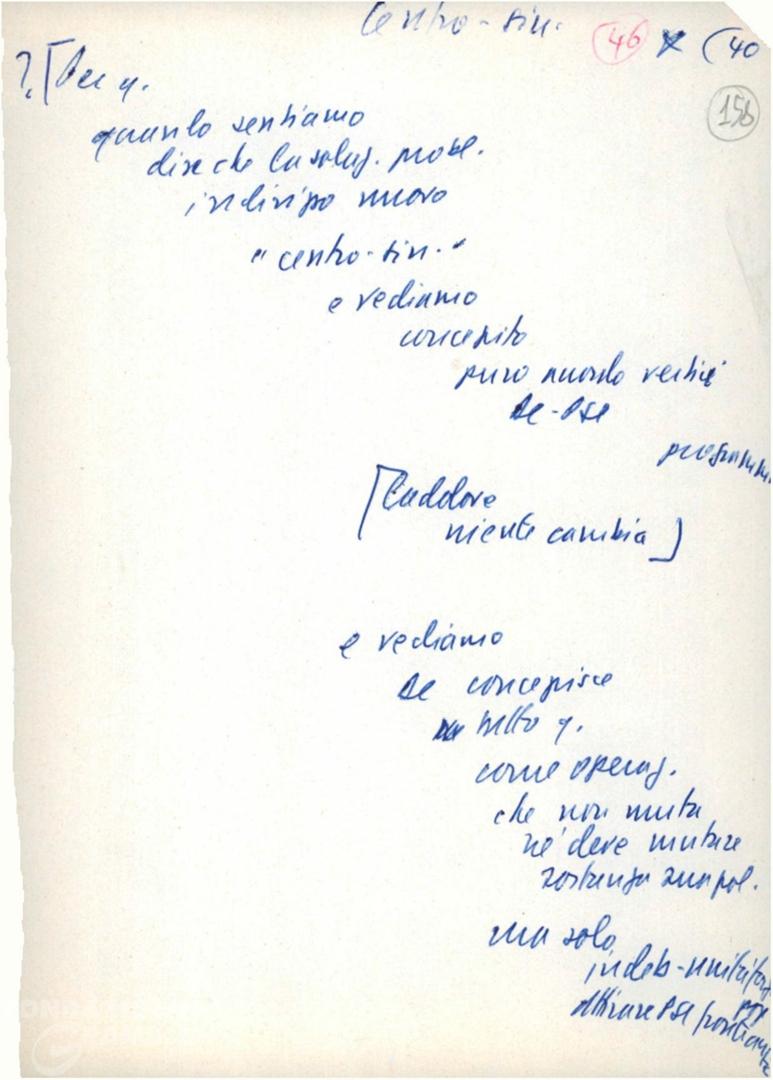 Centro-sin. 46 (40
156
?[Per q.
quando sentiamo
dire che la soluz. prose.
indirizzo nuovo
"centro-sin."
e vediamo
concepito
puro accordo vertici
DC-PSI
programm
[Laddove
niente cambia]
e vediamo
DC concepisce
tutto q.
come operaz.
che non muta
né deve mutare
sostanza sua pol.
ma solo
indeb-
attirare PSI